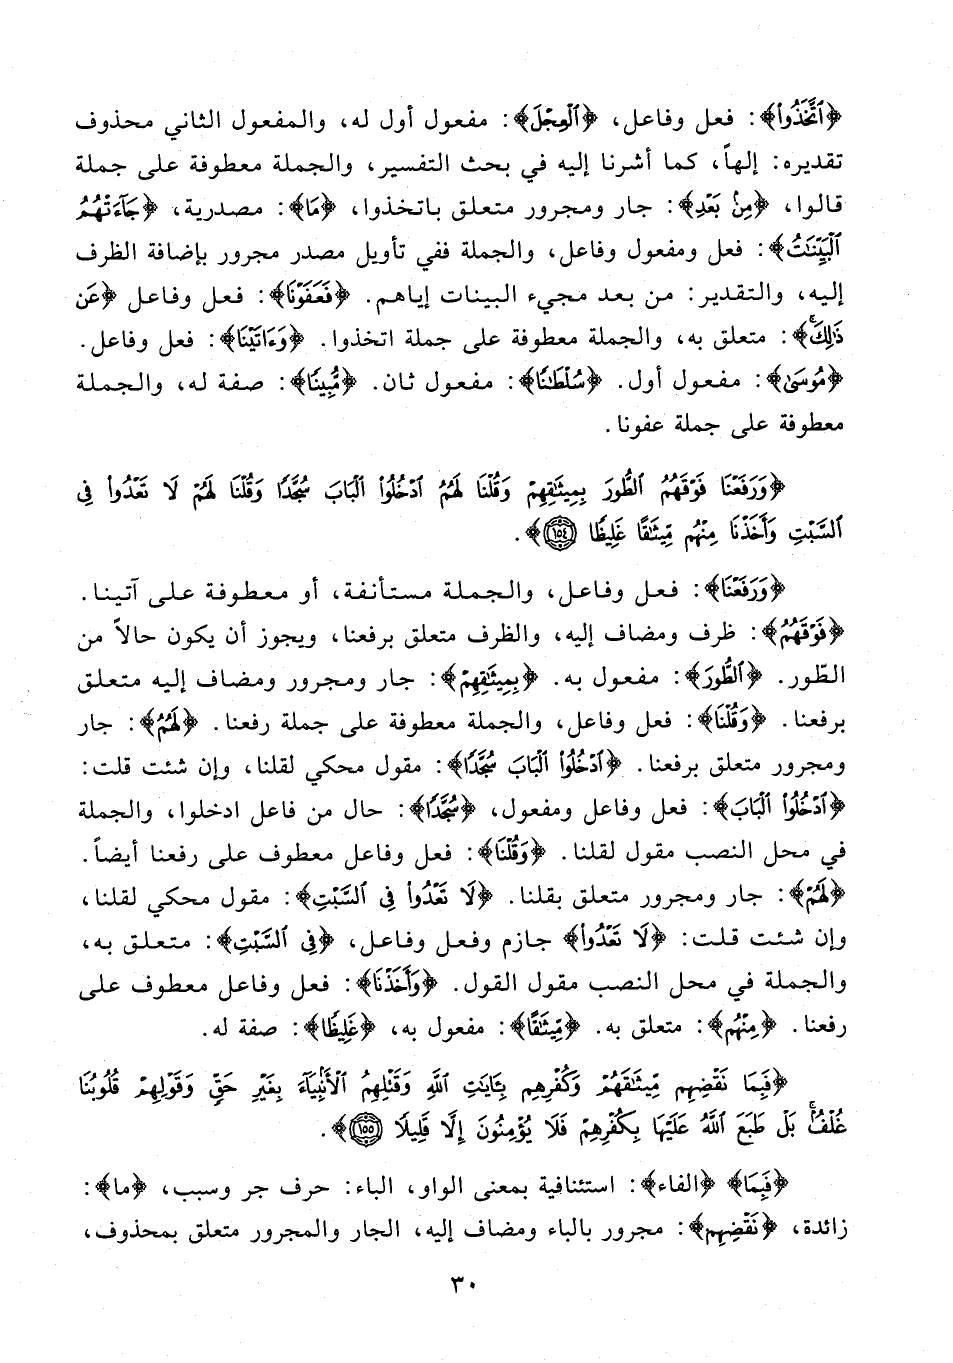 ﴿ٱتَّخَذُوا﴾: فعل وفاعل، ﴿ٱلْعِجْلَ﴾: مفعول أول له، والمفعول الثاني محذوف
تقديره: إلهاً، كما أشرنا إليه في بحث التفسير، والجملة معطوفة على جملة
قالوا، ﴿مِنۢ بَعْدِ﴾: جار ومجرور متعلق باتخذوا، ﴿مَا﴾: مصدرية، ﴿جَآءَتْهُمُ
ٱلْبَيِّنَٰتُ﴾: فعل ومفعول وفاعل، والجملة ففي تأويل مصدر مجرور بإضافة الظرف
إليه، والتقدير: من بعد مجيء البينات إياهم. ﴿فَعَفَوْنَا﴾: فعل وفاعل ﴿عَن
ذَٰلِكَۚ﴾: متعلق به، والجملة معطوفة على جملة اتخذوا. ﴿وَءَاتَيْنَا﴾: فعل وفاعل.
﴿مُوسَىٰ﴾: مفعول أول. ﴿سُلْطَٰنًا﴾: مفعول ثان. ﴿مُّبِينًا﴾: صفة له، والجملة
معطوفة على جملة عفونا.
﴿وَرَفَعْنَا فَوْقَهُمُ ٱلطُّورَ بِمِيثَٰقِهِمْ وَقُلْنَا لَهُمُ ٱدْخُلُوا۟ ٱلْبَابَ سُجَّدًا وَقُلْنَا لَهُمْ لَا تَعْدُوا۟ فِى
ٱلسَّبْتِ وَأَخَذْنَا مِنْهُم مِّيثَٰقًا غَلِيظًا ۝١٥٤﴾.
﴿وَرَفَعْنَا﴾: فعل وفاعل، والجملة مستأنفة، أو معطوفة على آتينا.
﴿فَوْقَهُمُ﴾: ظرف ومضاف إليه، والظرف متعلق برفعنا، ويجوز أن يكون حالاً من
الطّور. ﴿ٱلطُّورَ﴾: مفعول به. ﴿بِمِيثَٰقِهِمْ﴾: جار ومجرور ومضاف إليه متعلق
برفعنا. ﴿وَقُلْنَا﴾: فعل وفاعل، والجملة معطوفة على جملة رفعنا. ﴿لَهُمُ﴾: جار
ومجرور متعلق برفعنا. ﴿ٱدْخُلُوا۟ ٱلْبَابَ سُجَّدًا﴾: مقول محكي لقلنا، وإن شئت قلت:
﴿ٱدْخُلُوا۟ ٱلْبَابَ﴾: فعل وفاعل ومفعول، ﴿سُجَّدًا﴾: حال من فاعل ادخلوا، والجملة
في محل النصب مقول لقلنا. ﴿وَقُلْنَا﴾: فعل وفاعل معطوف على رفعنا أيضاً.
﴿لَهُمْ﴾: جار ومجرور متعلق بقلنا. ﴿لَا تَعْدُوا۟ فِى ٱلسَّبْتِ﴾: مقول محكي لقلنا،
وإن شئت قلت: ﴿لَا تَعْدُوا۟﴾ جازم وفعل وفاعل، ﴿فِى ٱلسَّبْتِ﴾: متعلق به،
والجملة في محل النصب مقول القول. ﴿وَأَخَذْنَا﴾: فعل وفاعل معطوف على
رفعنا. ﴿مِنْهُم﴾: متعلق به. ﴿مِّيثَٰقًا﴾: مفعول به، ﴿غَلِيظًا﴾: صفة له.
﴿فَبِمَا نَقْضِهِم مِّيثَٰقَهُمْ وَكُفْرِهِم بِـَٔايَٰتِ ٱللَّهِ وَقَتْلِهِمُ ٱلْأَنۢبِيَآءَ بِغَيْرِ حَقٍّ وَقَوْلِهِمْ قُلُوبُنَا
غُلْفٌۢۚ بَلْ طَبَعَ ٱللَّهُ عَلَيْهَا بِكُفْرِهِمْ فَلَا يُؤْمِنُونَ إِلَّا قَلِيلًا ۝١٥٥﴾.
﴿فَبِمَا﴾ ﴿الفاء﴾: استئنافية بمعنى الواو، الباء: حرف جر وسبب، ﴿ما﴾:
زائدة، ﴿نَقْضِهِم﴾: مجرور بالباء ومضاف إليه، الجار والمجرور متعلق بمحذوف،
٣٠